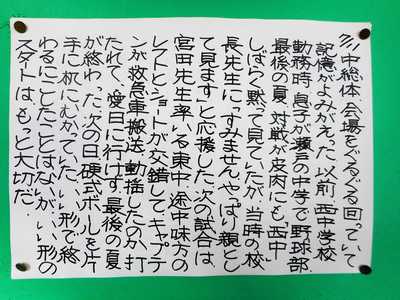 7/11中総体会場をぐるぐる回っていて
記憶がよみがえった。以前西中学校
勤務時、息子が瀬戸の中学で野球部。
最後の夏、対戦が皮肉にも西中
しばらく黙って見ていたが、当時の校
長先生に「すみませんやっぱり親とし
て見ます」と応援した。次の試合は、
宮田先生率いる東中、途中味方の
レフトとショトが交錯してキャプテ
ンが救急車搬送、動揺したのか打
たれて、愛日に行けず。最後の夏
が終わった。次の日硬式ボールを片
手に机にむかっていた。いい形で終
わるにこしたことはないが、いい形の
スタートはもっと大切だ。